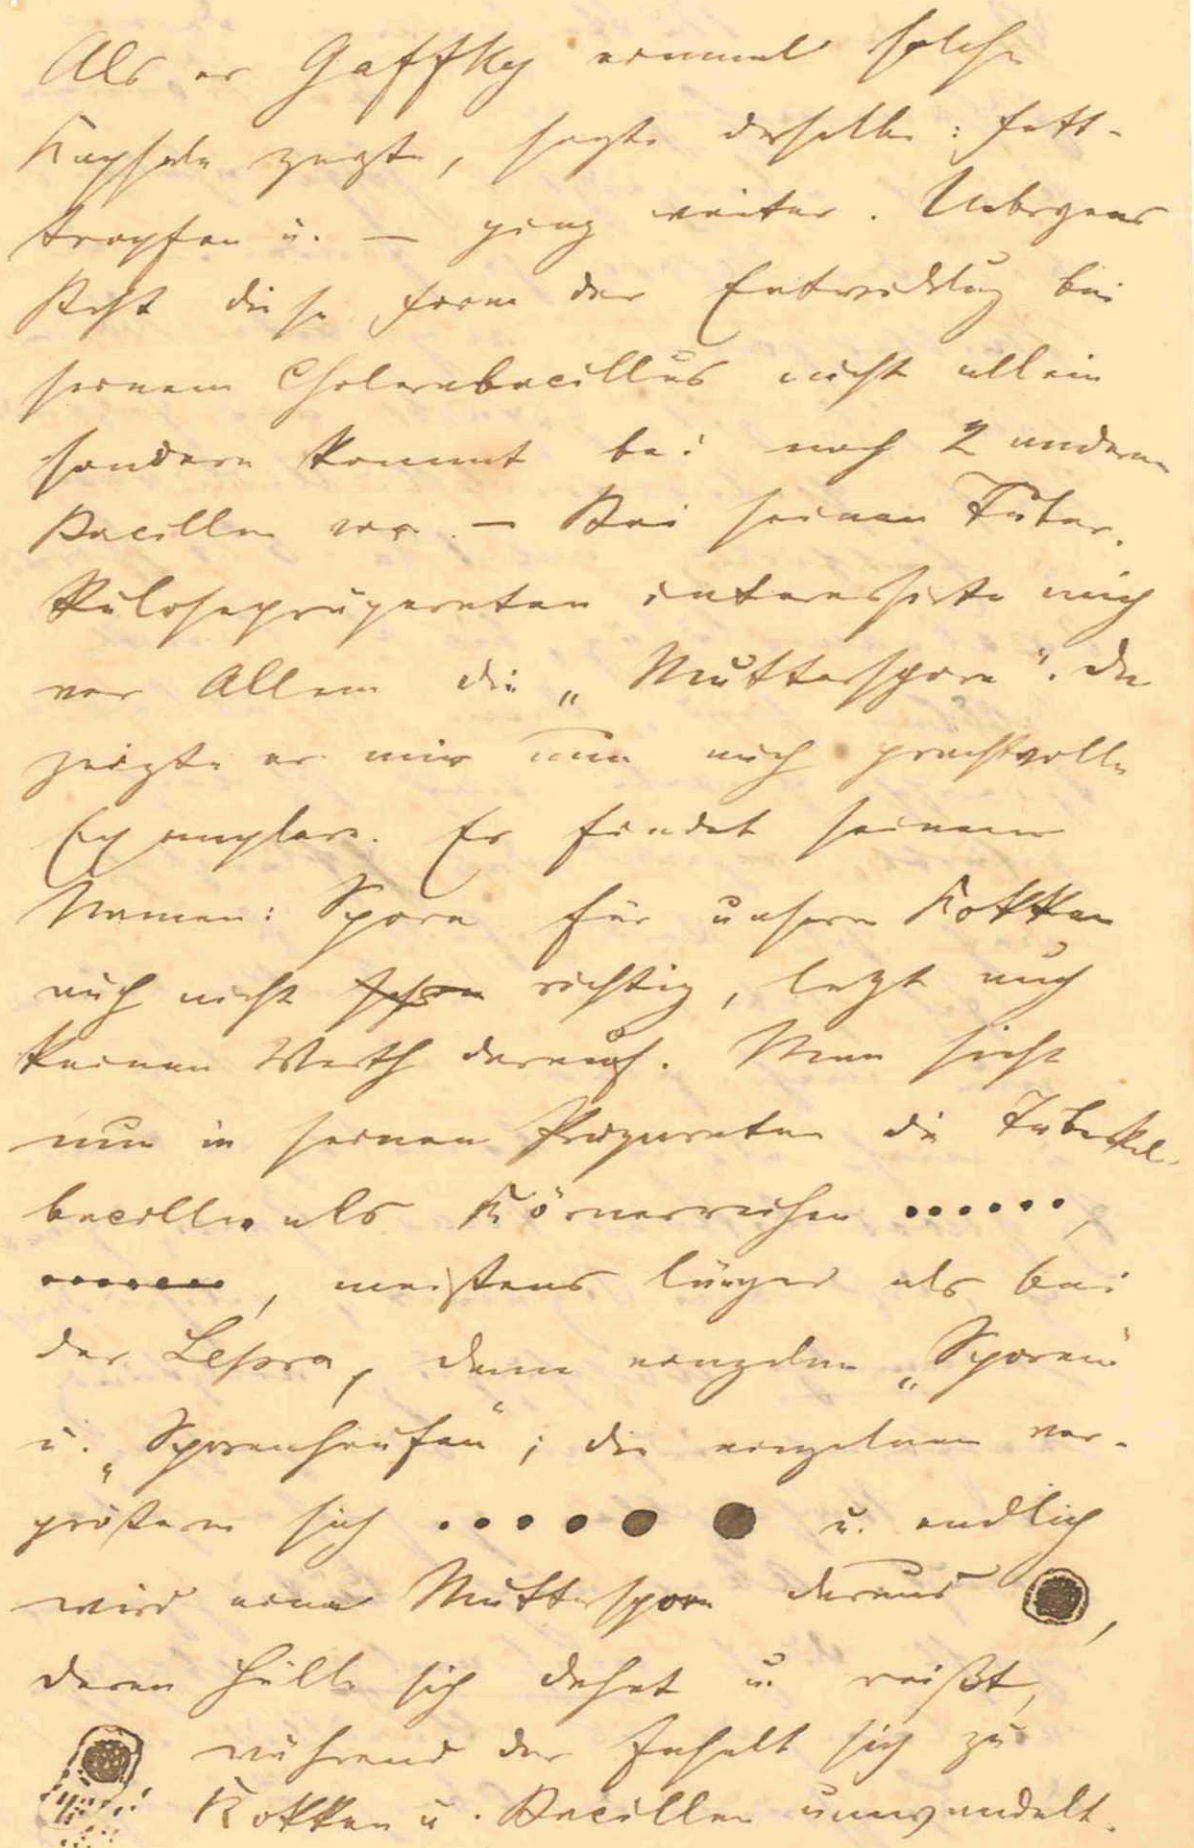 Als er Gaffky einmal solche
Kapseln zeigte, sagte derselbe: Fett-
tropfen u. — ging weiter. Uebrigens
steht diese Form der Entwicklug bei
seinem Cholerabacillus nicht allein
sondern kommt bei noch 2 anderen
Bacillen vor. — Bei seinen Tuber-
kulosepräparaten interessirte mich
vor Allem die „Mutterspore“. Da
zeigte er mir nun auch prachtvolle
Exemplare. Er findet seinen
Namen: Spore für unsere Kokken
auch nicht richtig, legt auch
keinen Werth darauf. Man sieht
nun in seinen Präparaten die Tuberkel-
bacillen als Körnerreihen ......,
......., meistens länger als bei
der Lepra, dann einzelne „Sporen“
u. „Sporenhaufen“; die einzelnen ver-
größern sich ● u. endlich
wird eine Mutterspore daraus ,
deren Hülle sich dehnt u. reißt,
während der Inhalt sich zu
Kokken u. Bacillen umwandelt.